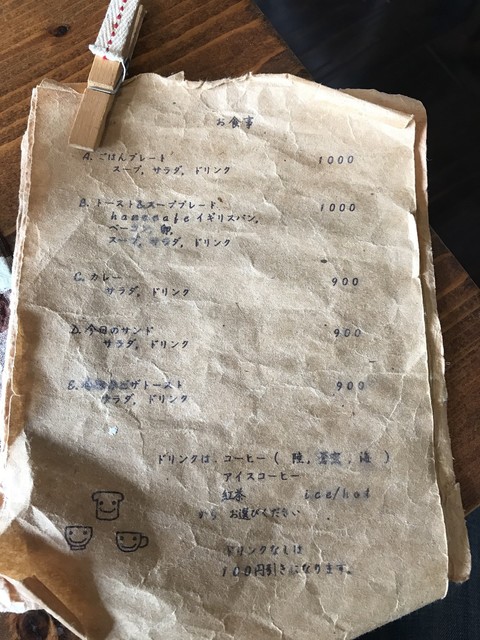 お食事
A. ごはんプレート 1000
スープ, サラダ, ドリンク
B. トースト&スーププレート 1000
hanecafeイギリスパン,
ベーコン, 卵,
スープ, サラダ, ドリンク
C. カレー 900
サラダ, ドリンク
D. 今日のサンド 900
サラダ, ドリンク
E. ピザトースト 900
サラダ, ドリンク
ドリンクは, コーヒー ( 陸, 海 )
アイスコーヒー
紅茶 ice/hot
から お選びください
ドリンクなしは
100円引きになります。